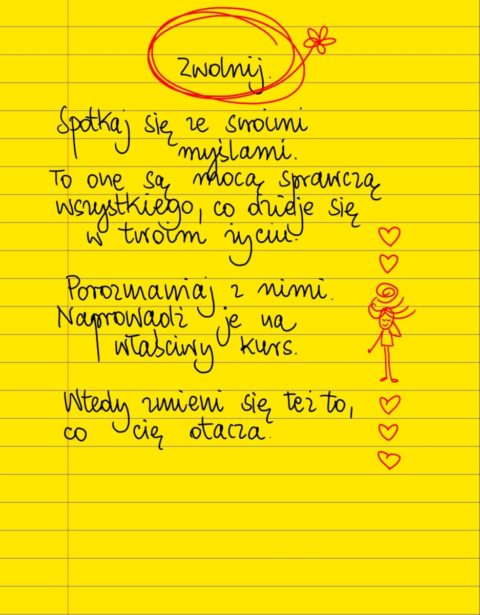 Zwolnij.
Spotkaj się ze swoimi
myślami.
To one są mocą sprawczą
wszystkiego, co dzieje się
w twoim życiu.
Porozmawiaj z nimi.
Naprowadź je na
właściwy kurs.
Wtedy zmieni się też to,
co cię otacza.